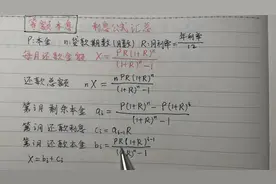 等额本息 利息公式汇总
P:本金 n:贷款期数(月数) R:月利率=年利率/12
每月还款金额 X=PR(1+R)^n/((1+R)^n-1)
还款总额 nX=nPR(1+R)^n/((1+R)^n-1)
第i月 剩余本金 a_i=(P(1+R)^n-P(1+R)^i)/((1+R)^n-1)
第i月 还款利息 c_i=a_{i-1}R
第i月 还款本金 b_i=PR(1+R)^{i-1}/((1+R)^n-1)
X=b_i+c_i